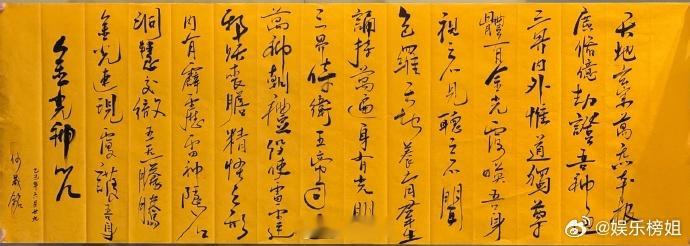 天地玄宗萬炁本根
廣修億劫證吾神通
三界内外惟道獨尊
體有金光覆映吾身
視之不見聽之不聞
包羅天地養育群生
誦持萬遍身有光明
三界侍衛五帝司迎
萬神朝禮役使雷霆
邪妖喪膽精怪亡形
内有霹靂雷神隱名
洞慧交徹五炁騰騰
金光速現覆護吾身
金光神咒
乙巳年六月廿九
何晟銘
@娱乐榜姐